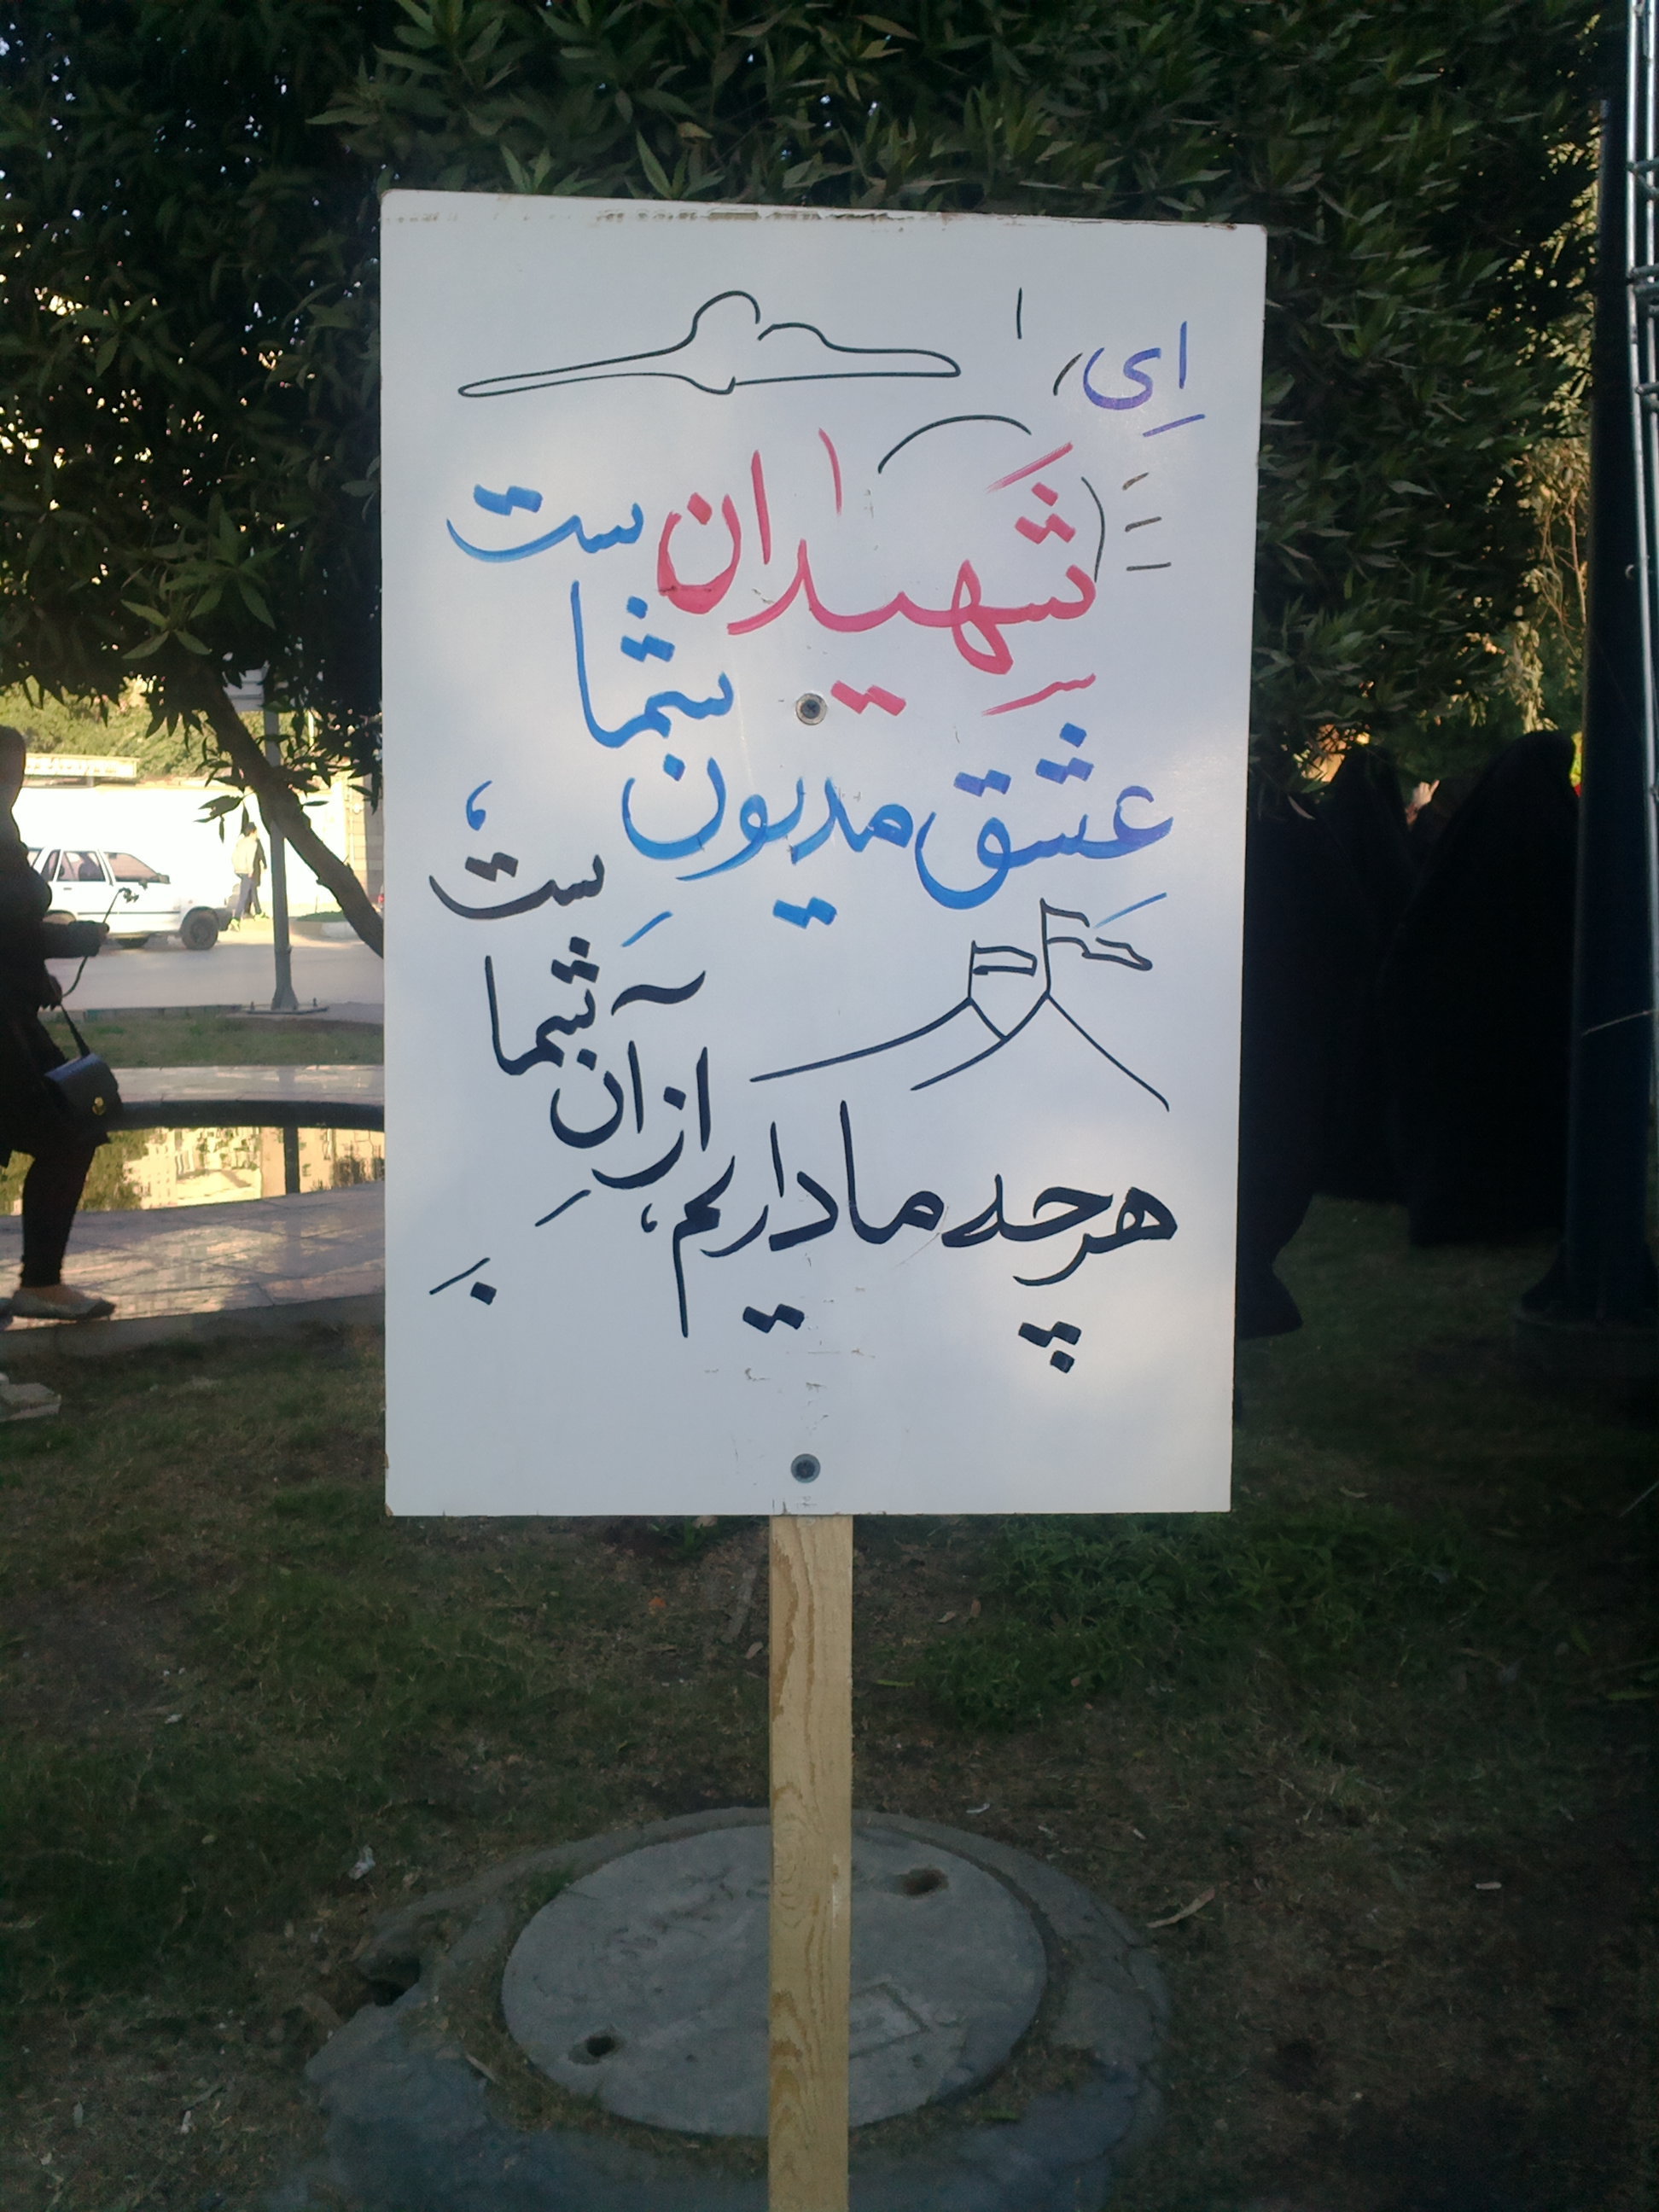 اِی
شَهِیدان
عشقِ مدیونِ شماست،
هرچه ما داریم، از آنِ شماست